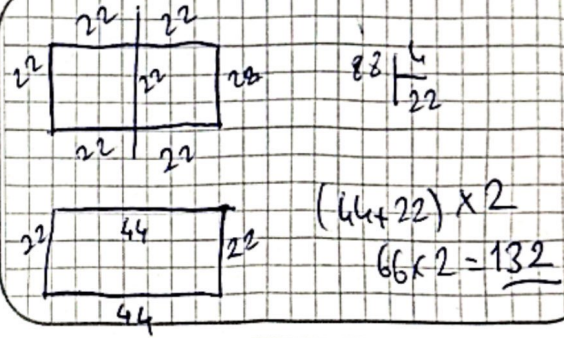 22 22
22 22 28
22 22
88 4
22
22 44 22
44
(44+22) x 2
66x2 = 132